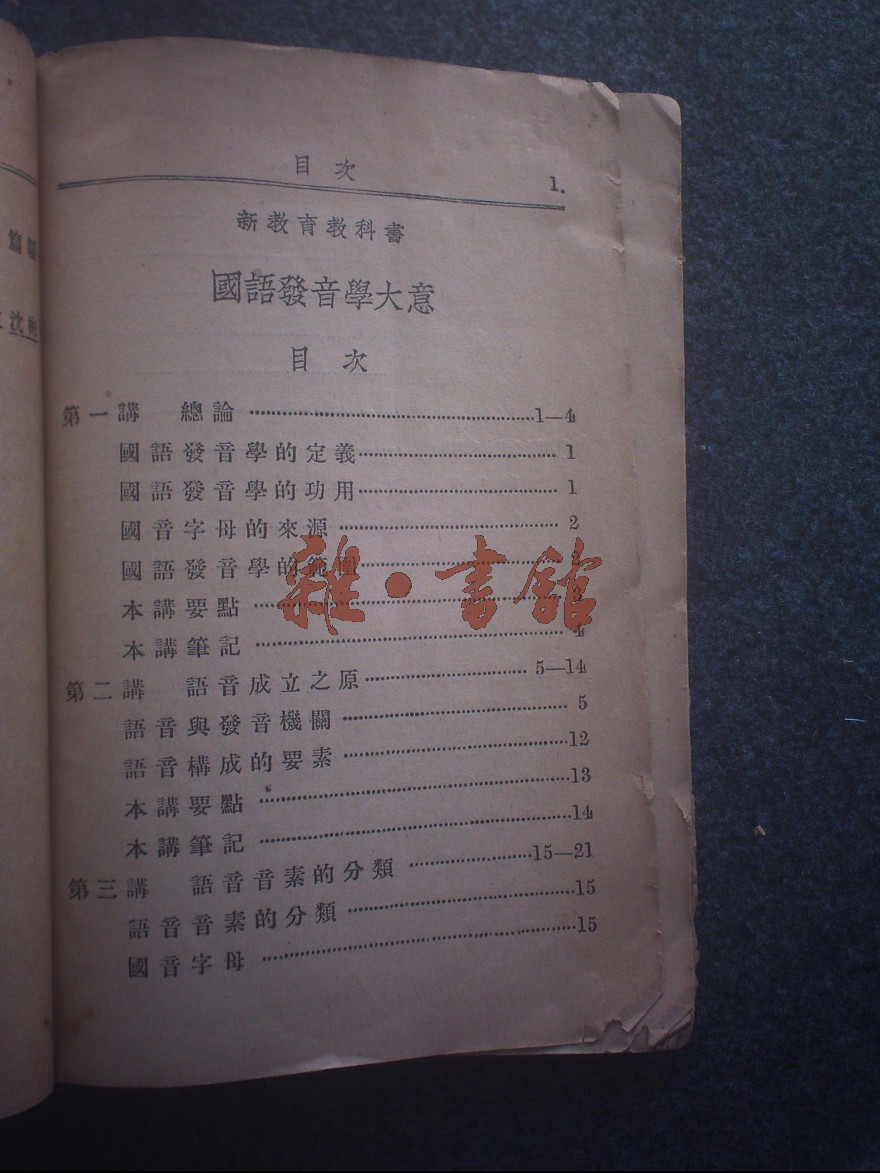 目次 1.
新教育教科書
國語發音學大意
目次
第一講 總論 1—4
國語發音學的定義 1
國語發音學的功用 1
國音字母的來源 2
國語發音學的範圍
本講要點 3
本講筆記 4
第二講 語音成立之原 5—14
語音與發音機關 5
語音構成的要素 12
本講要點 13
本講筆記 14
第三講 語音音素的分類 15—21
語音音素的分類 15
國音字母 15
雜·書館
沈